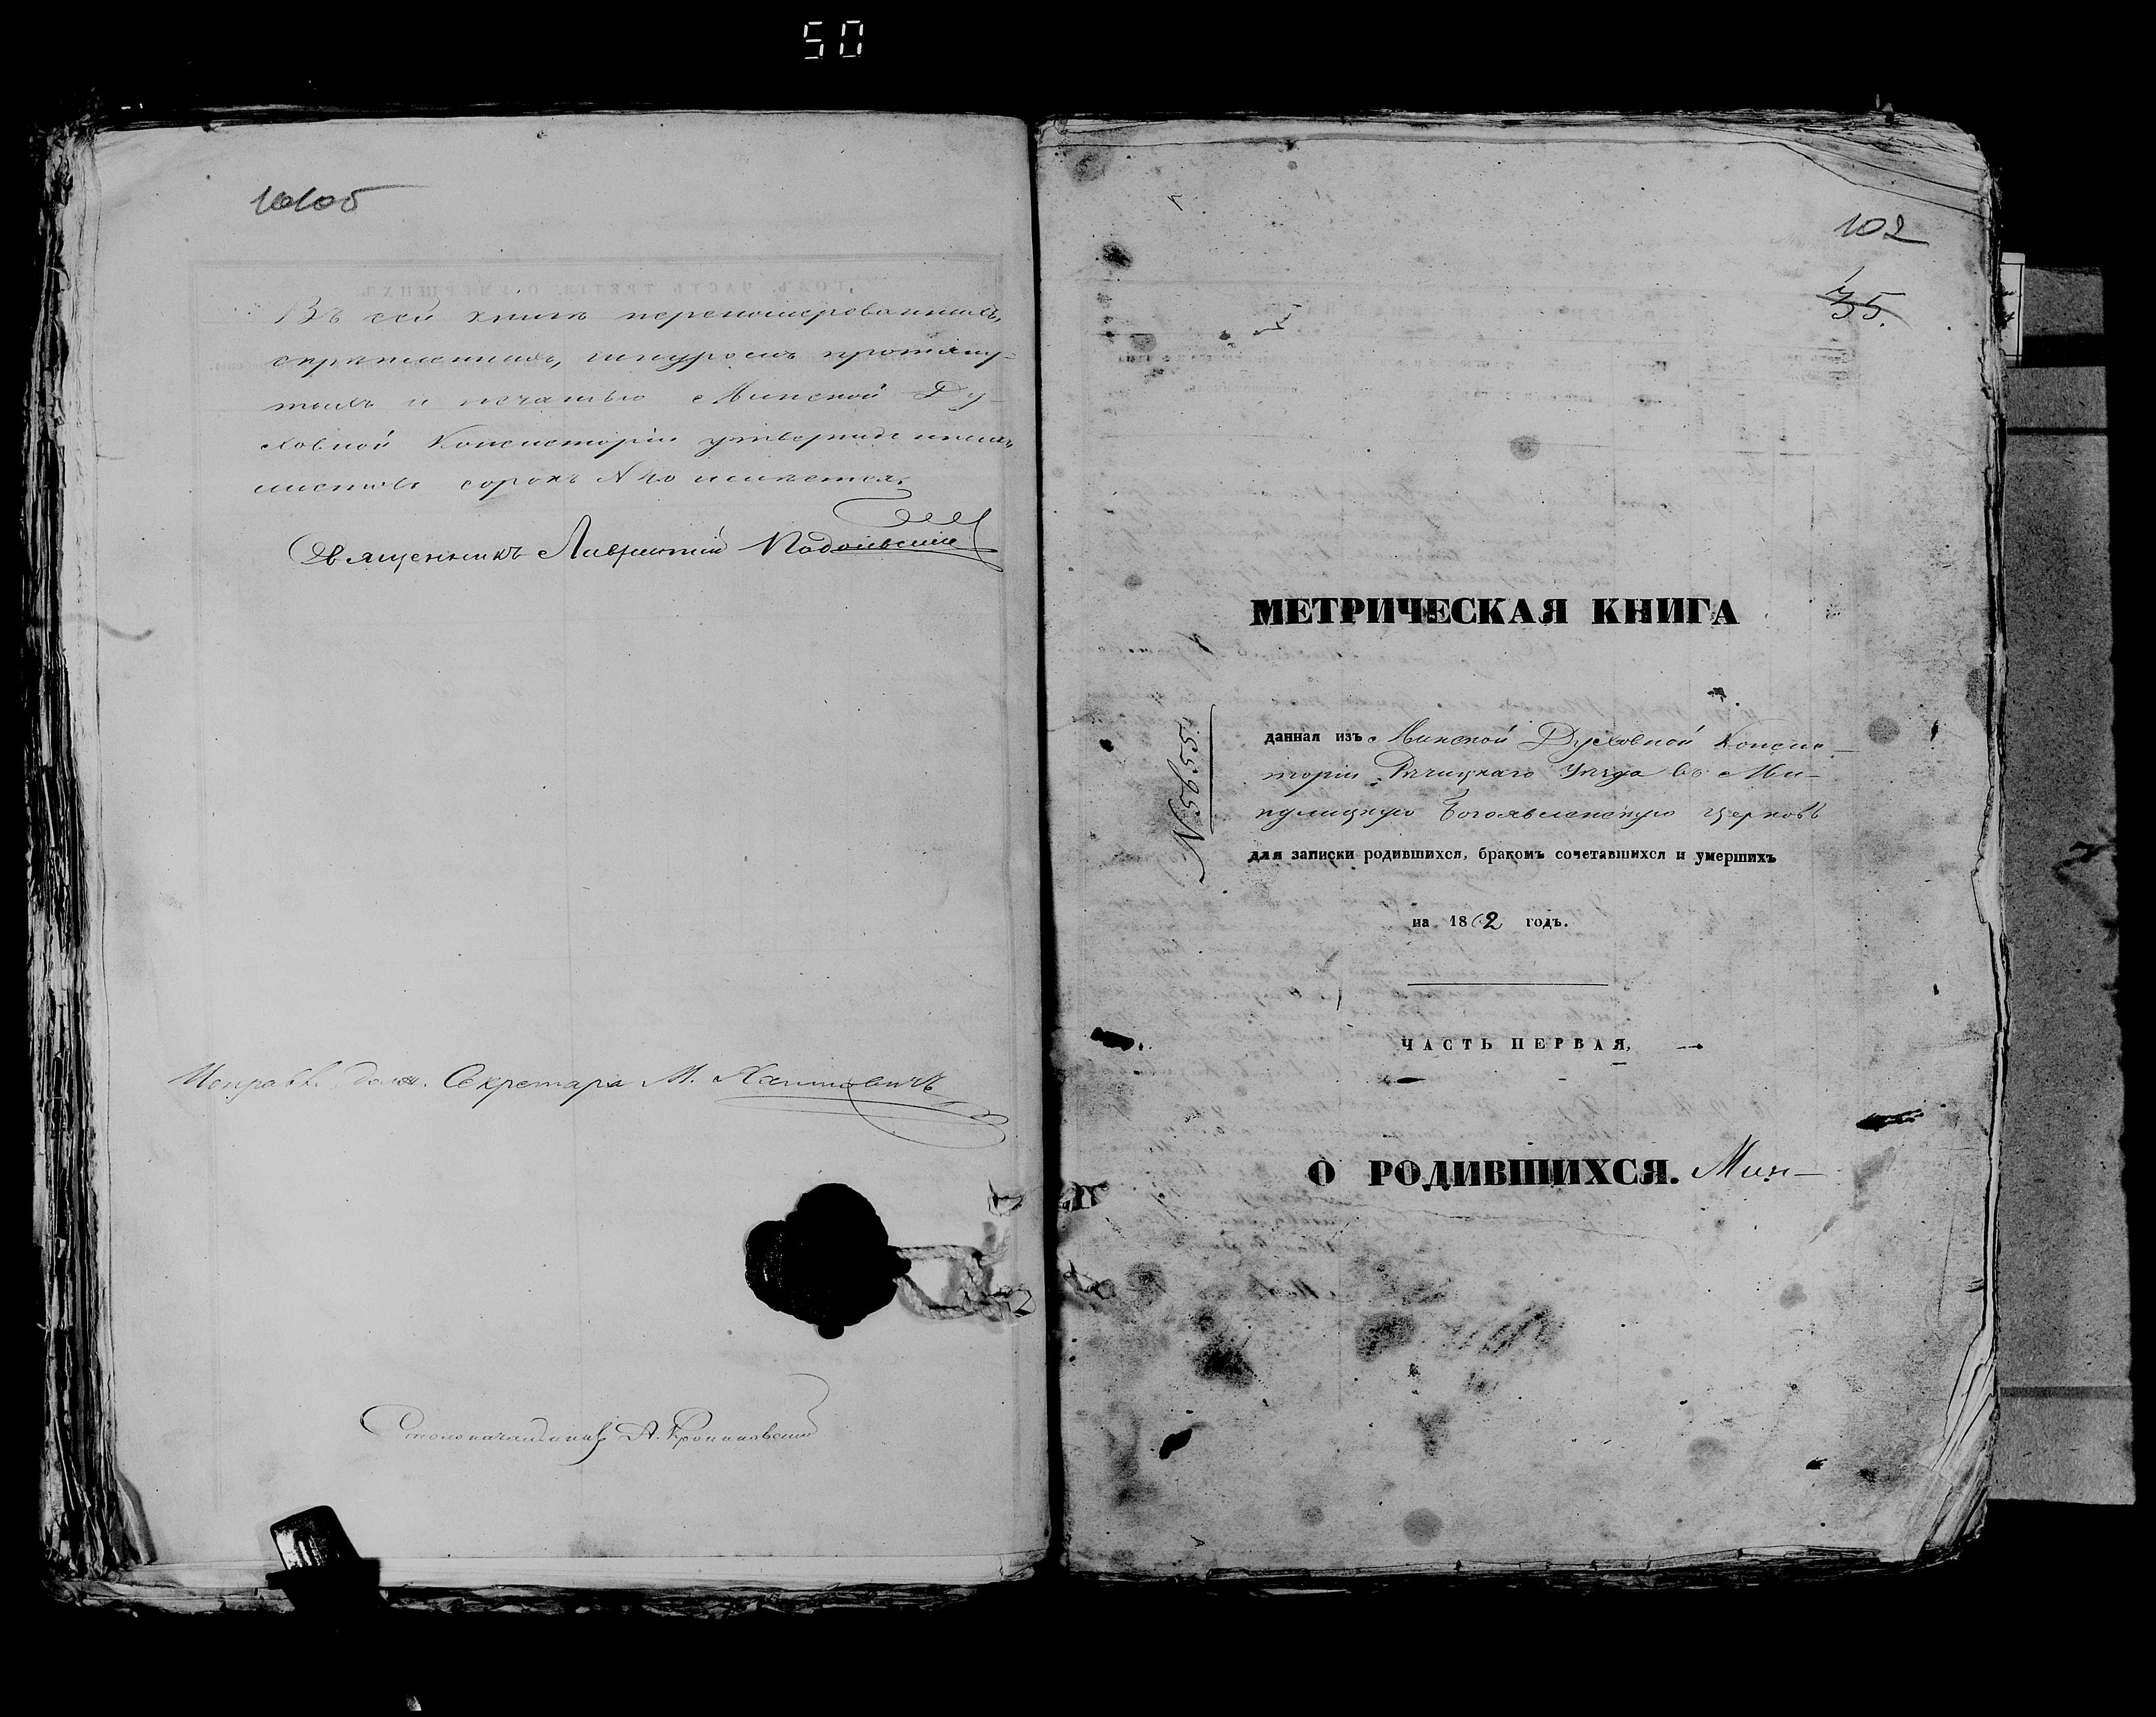 50
10105
Въ сей книгѣ перенумерованныхъ,
скрѣпленныхъ, шнуромъ протяну-
тыхъ и печатью Минской Ду-
ховной Консисторіи утвержденныхъ
листовъ сорокъ N 40 имѣется.
Священникъ Лаврентій
Исправл. долж. Секретаря М.
Столоначальникъ А.
102
35.
МЕТРИЧЕСКАЯ КНИГА
данная изъ Минской Духовной Конси-
торіи Рѣчицкаго Уѣзда въ Ми-
кулицкую Богоявленскую церковь
для записки родившихся, бракомъ сочетавшихся и умершихъ
на 1862 годъ.
ЧАСТЬ ПЕРВАЯ,
О РОДИВШИХСЯ. Мик-